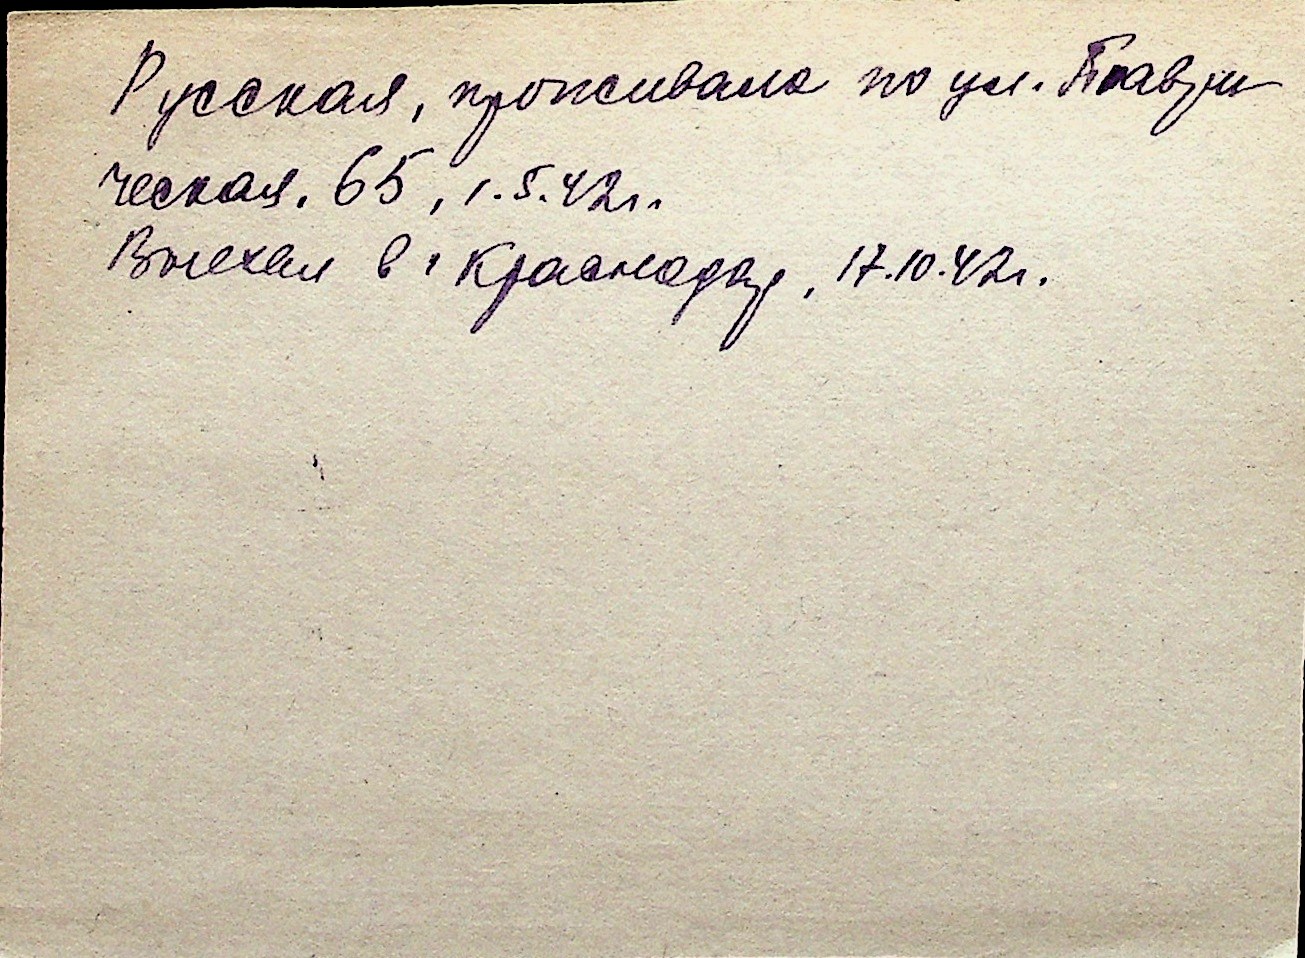 Русская, проживала по ул. Таври
ческая. 65, 1.5.42г.
Выехал в г Краснодар, 17.10.42г.